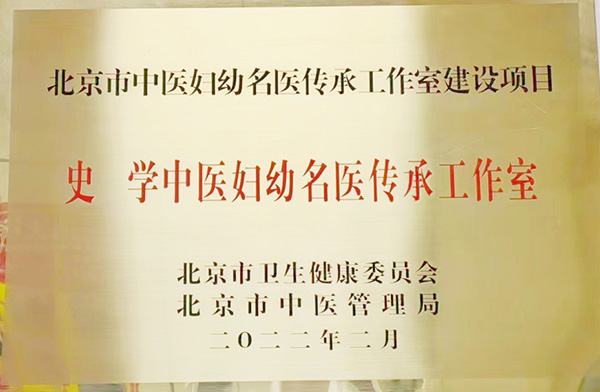 北京市中医妇幼名医传承工作室建设项目
史 学中医妇幼名医传承工作室
北京市卫生健康委员会
北京市中医管理局
二〇二二年二月